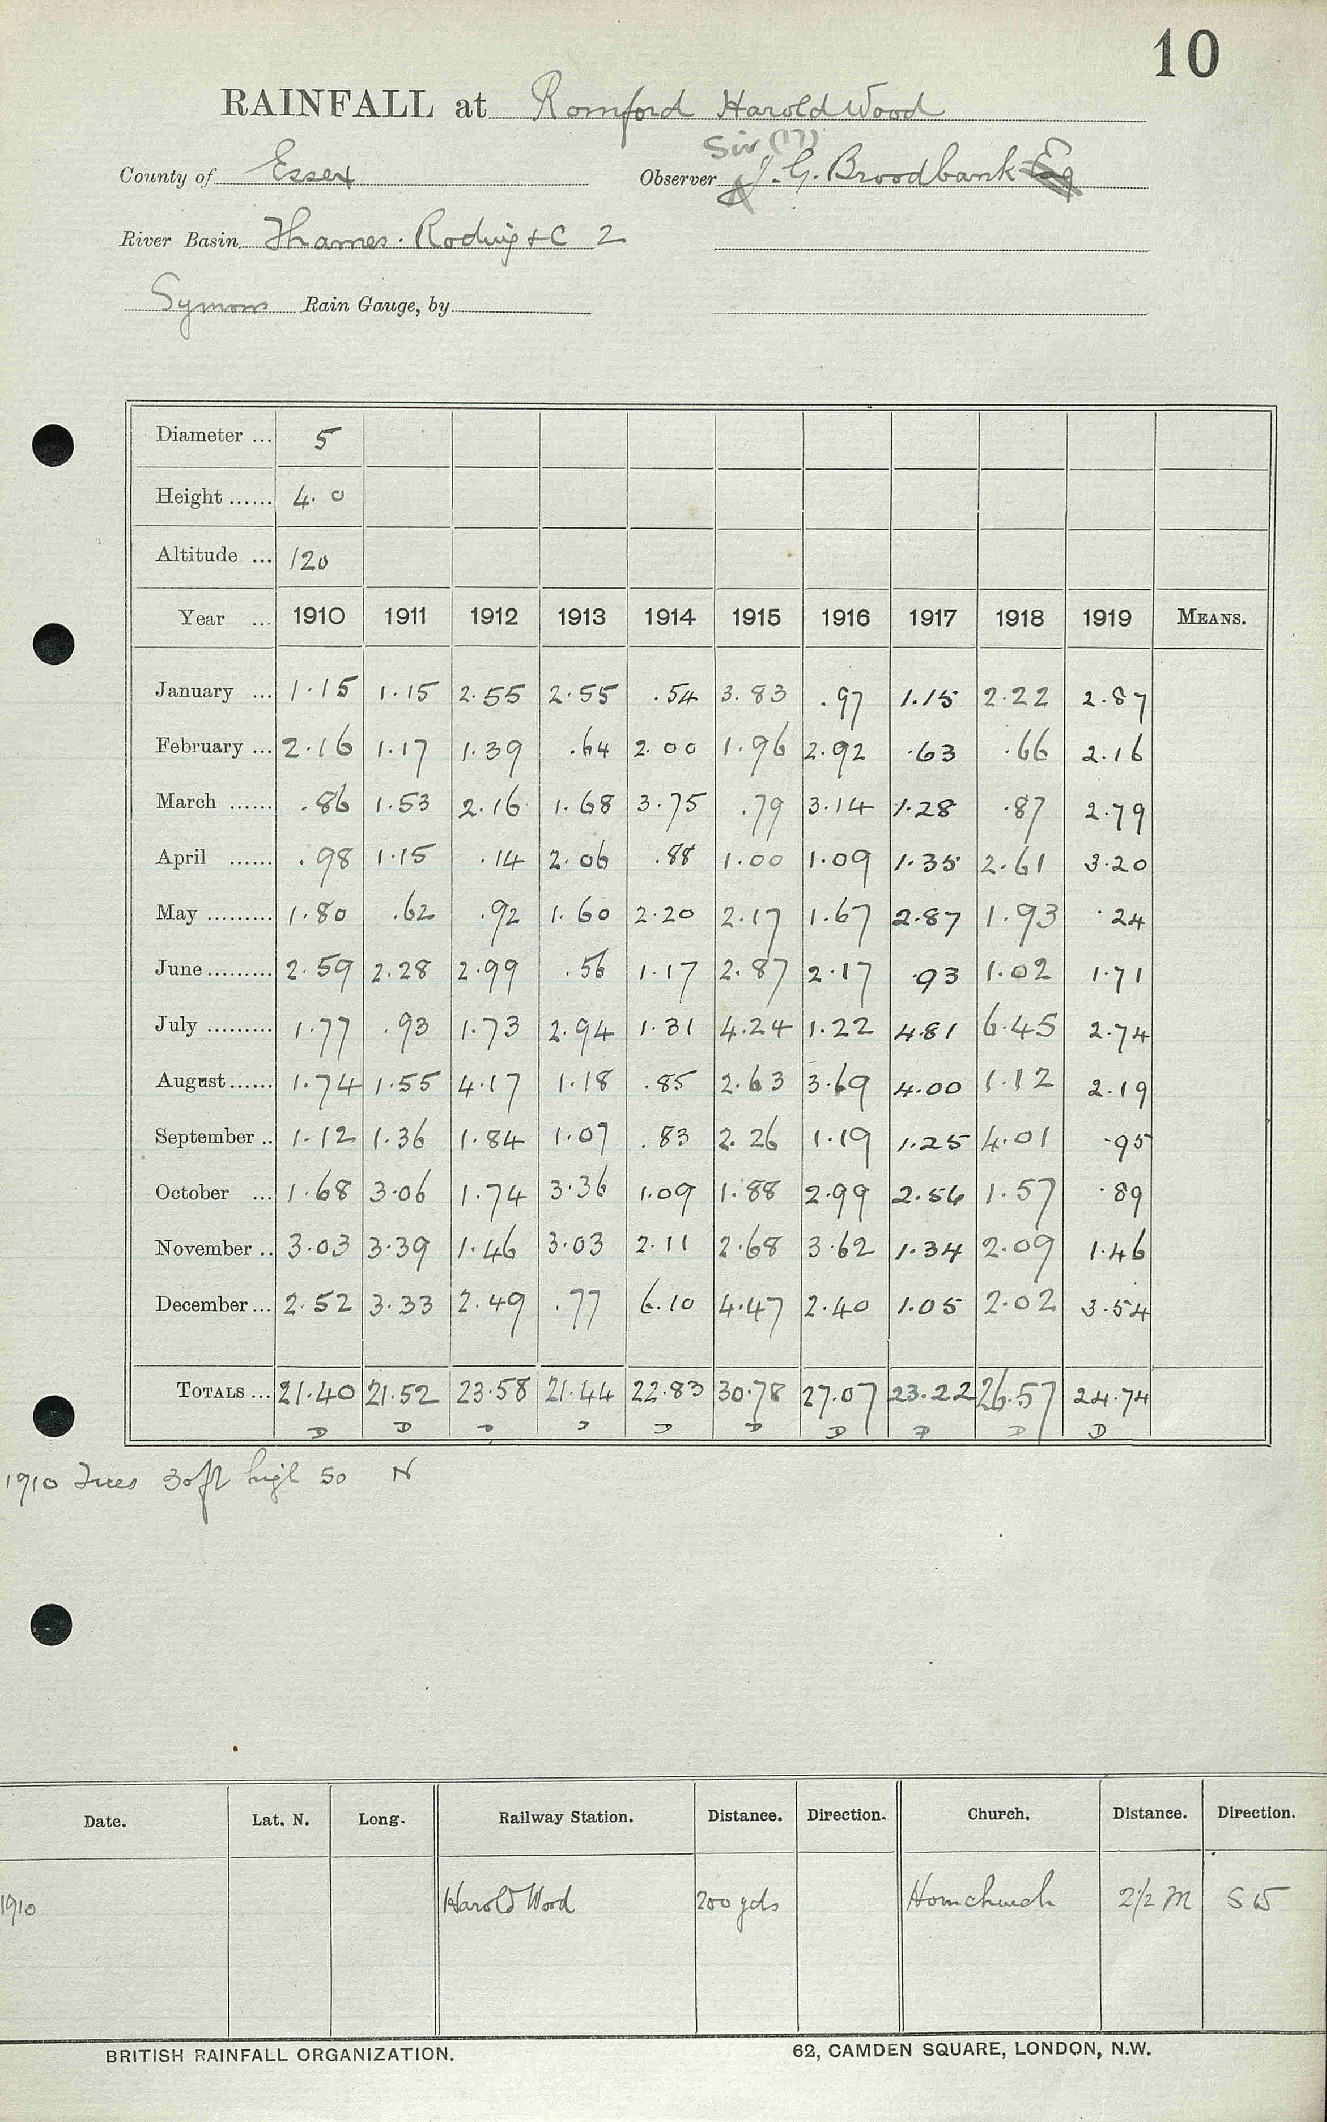 10
RAINFALL at Romford Harold Wood
Sir (17)
County of Essex Observer J. G. Broodbank Esq
River Basin Thames. Roding &c 2
Symons Rain Gauge, by
Diameter ... 5
Height ...... 4. 0
Altitude ... 120
Year ... 1910 1911 1912 1913 1914 1915 1916 1917 1918 1919 MEANS.
January ... 1.15 1.15 2.55 2.55 .54 3.83 .97 1.15 2.22 2.87
February ... 2.16 1.17 1.39 .64 2.00 1.96 2.92 .63 .66 2.16
March ...... .86 1.53 2.16 1.68 3.75 .79 3.14 1.28 .87 2.79
April ...... .98 1.15 .14 2.06 .88 1.00 1.09 1.35 2.61 3.20
May ......... 1.80 .62 .92 1.60 2.20 2.17 1.67 2.87 1.93 .24
June ......... 2.59 2.28 2.99 .56 1.17 2.87 2.17 .93 1.02 1.71
July ......... 1.77 .93 1.73 2.94 1.31 4.24 1.22 4.81 6.45 2.74
August...... 1.74 1.55 4.17 1.18 .85 2.63 3.69 4.00 1.12 2.19
September .. 1.12 1.36 1.84 1.07 .83 2.26 1.19 1.25 4.01 .95
October ... 1.68 3.06 1.74 3.36 1.09 1.88 2.99 2.56 1.57 .89
November .. 3.03 3.39 1.46 3.03 2.11 2.68 3.62 1.34 2.09 1.46
December ... 2.52 3.33 2.49 .77 6.10 4.47 2.40 1.05 2.02 3.54
TOTALS ... 21.40 21.52 23.58 21.44 22.83 30.78 27.07 23.22 26.57 24.74
D D D D D D D D D D
1910 Trees 30ft high 50 N
Date. Lat. N. Long. Railway Station. Distance. Direction. Church. Distance. Direction.
1910 Harold Wood 200 yds Hornchurch 2½ M SW
BRITISH RAINFALL ORGANIZATION. 62, CAMDEN SQUARE, LONDON, N.W.